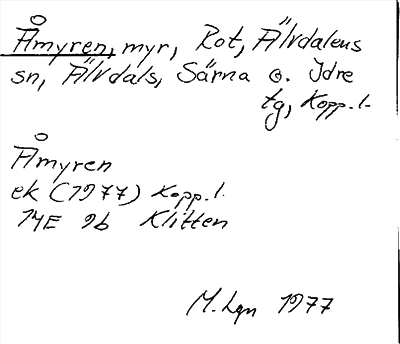 Åmyren, myr, Rot, Älvdalens
sn, Älvdals, Särna o. Idre
tg, Kopp. l.
Åmyren
ek (1977) Kopp. l.
14E 9b Klitten
M. Lgn 1977